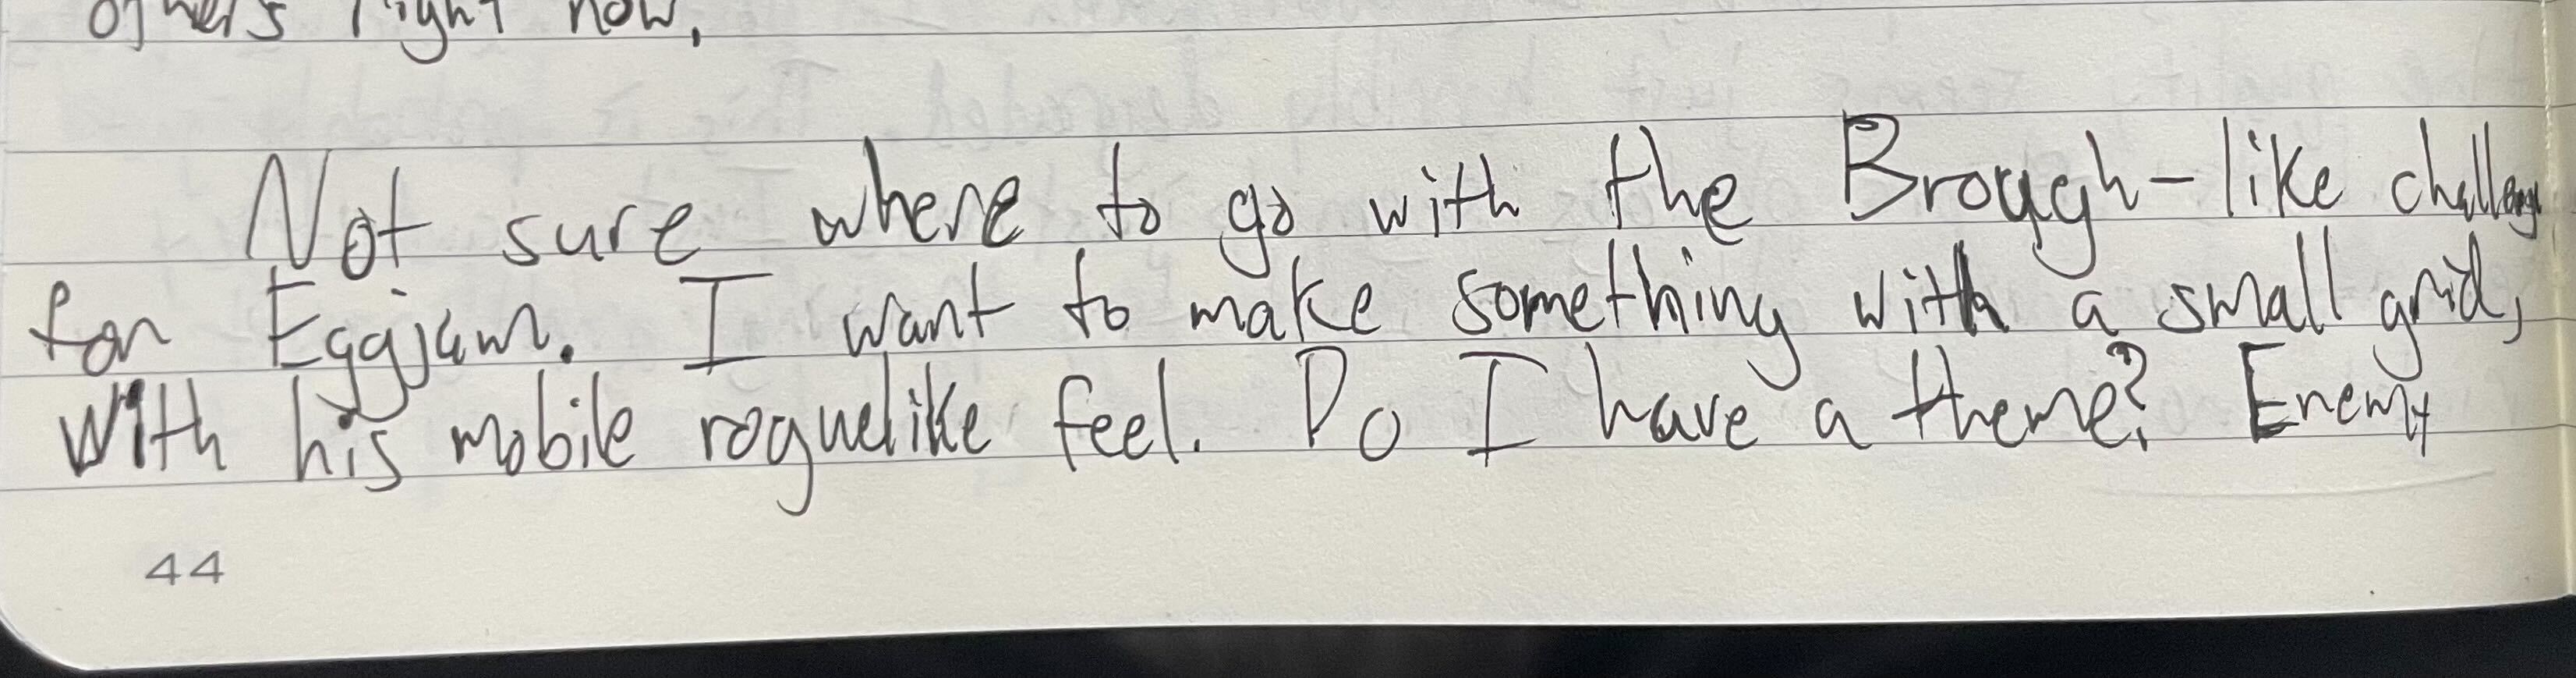 others right now.
Not sure where to go with the Brough-like challenge
for Eggjam. I want to make something with a small grid,
with his mobile roguelike feel. Do I have a theme? Enemy
44